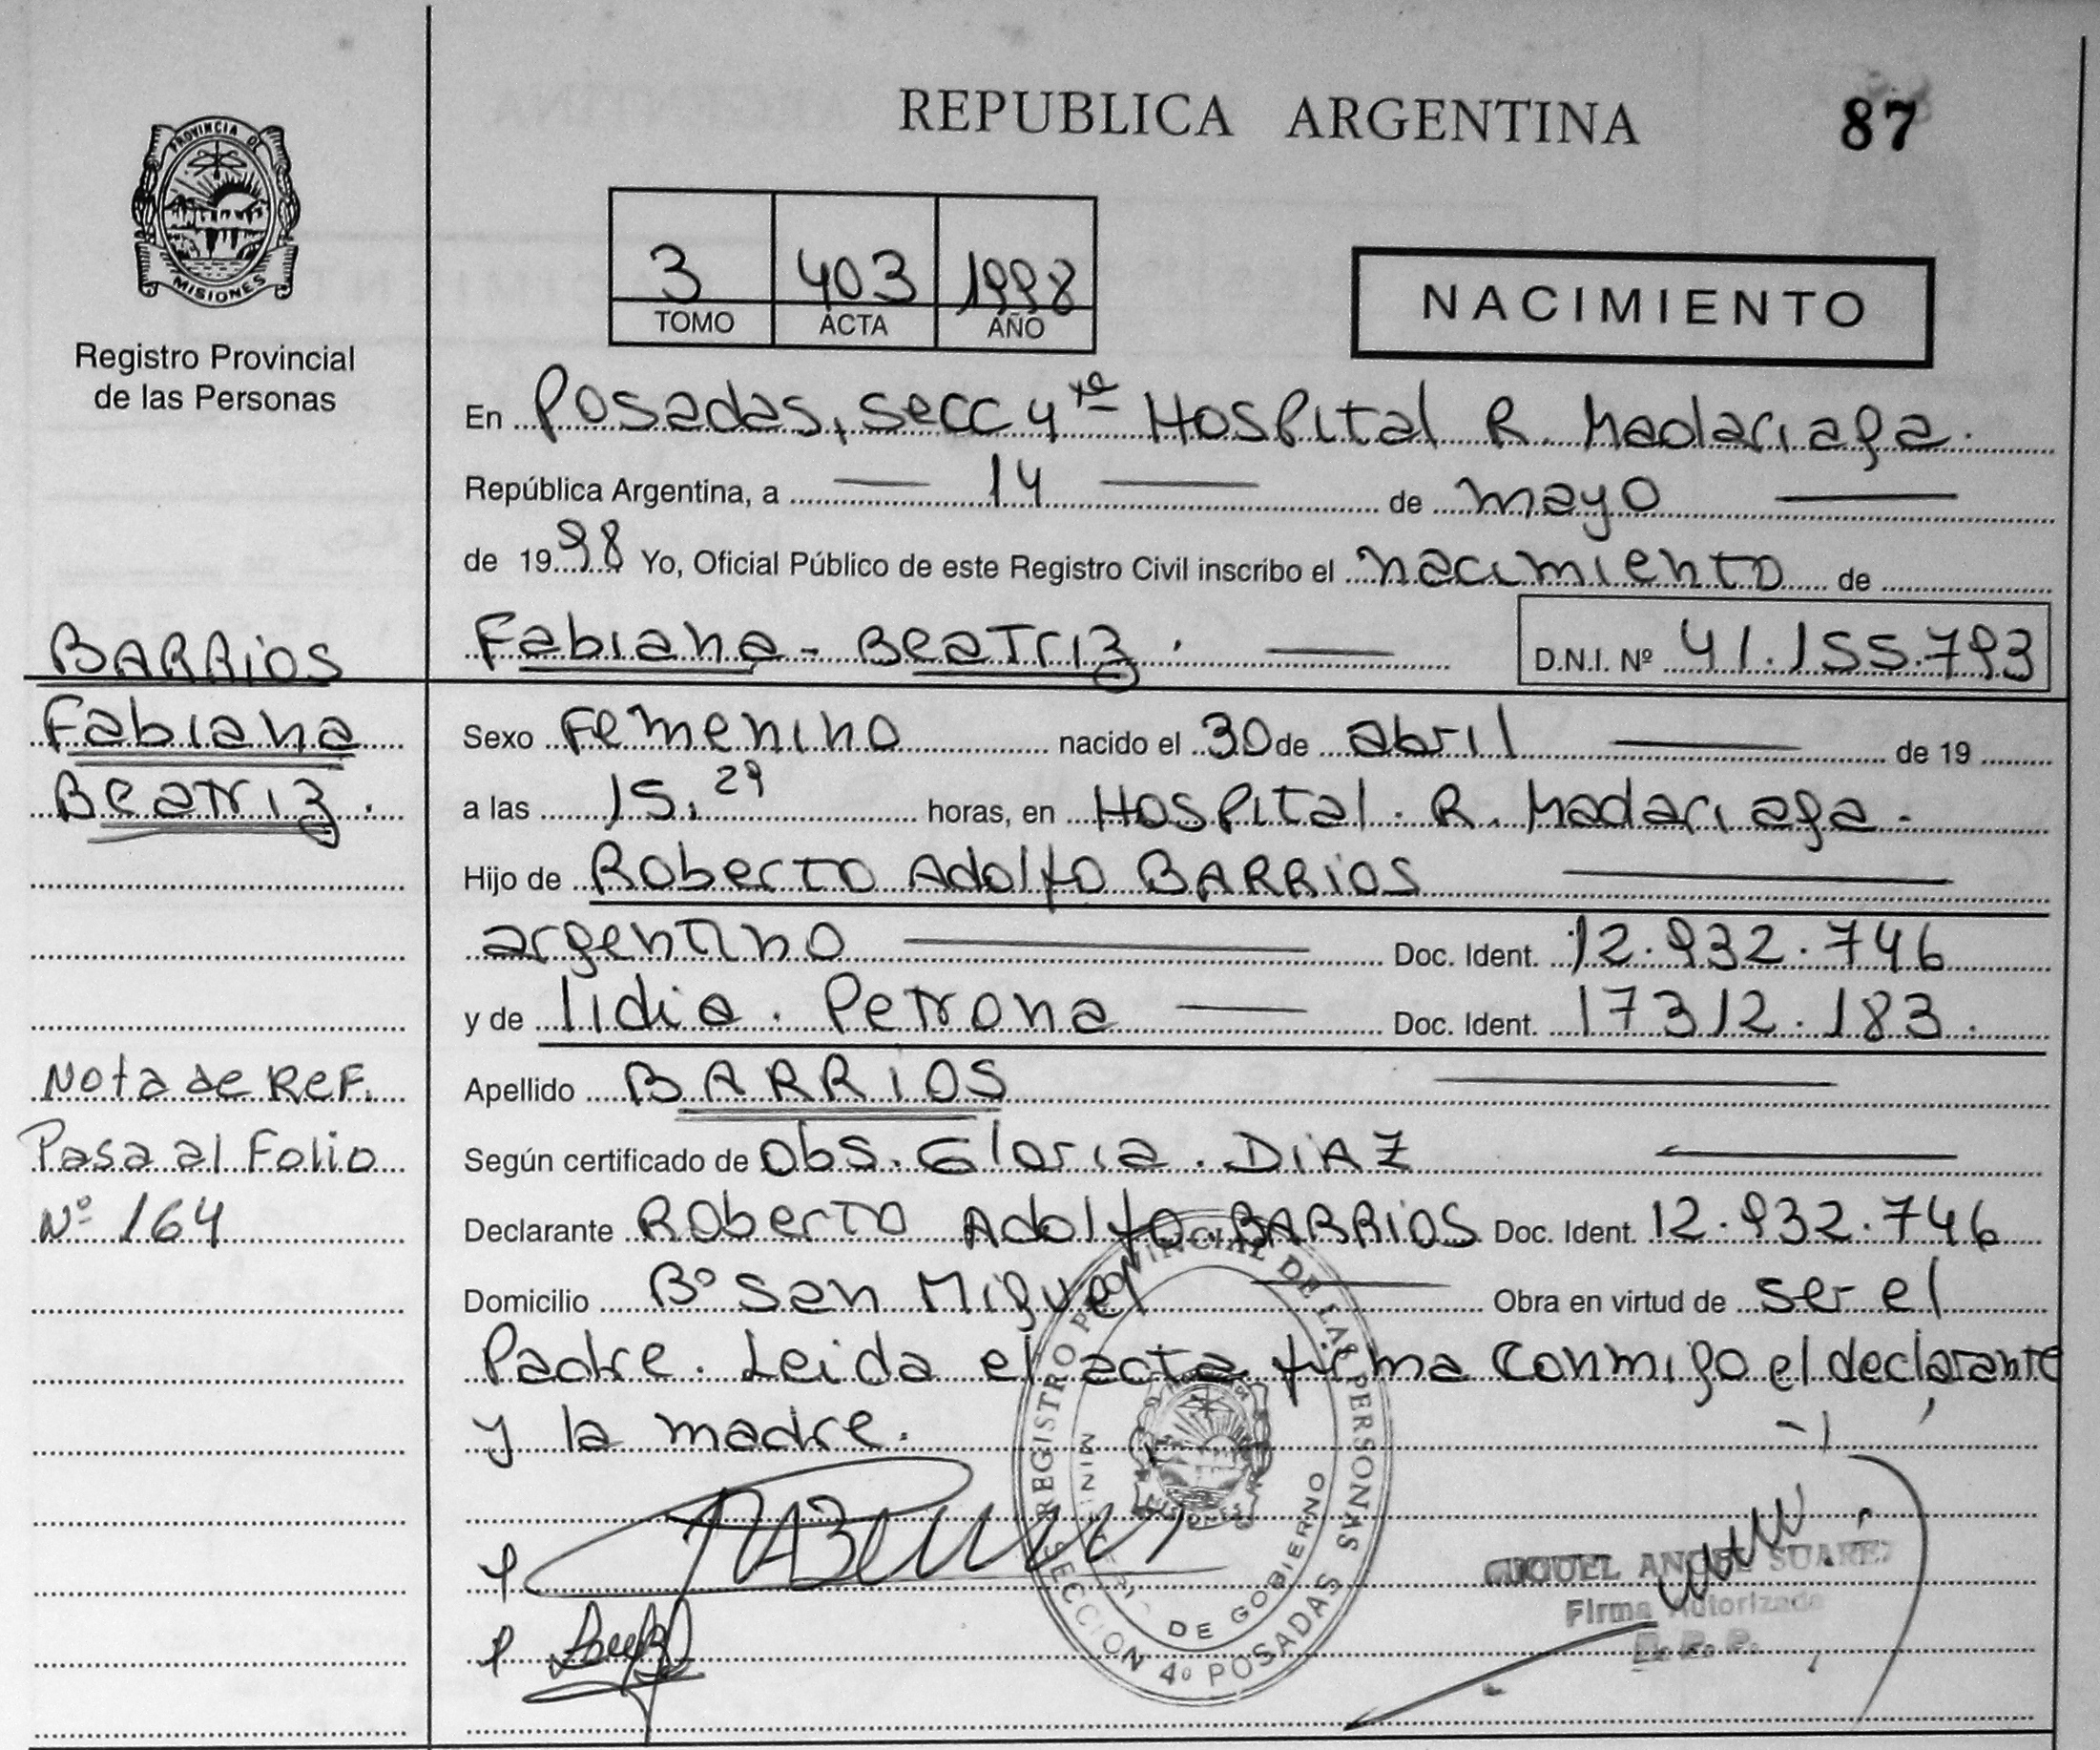 REPUBLICA ARGENTINA 87
PROVINCIA DE
MISIONES
Registro Provincial
de las Personas
3 403 1998
TOMO ACTA AÑO
NACIMIENTO
En Posadas, secc 4ta Hospital R. Madariaga.
República Argentina, a 14 de mayo
de 1998 Yo, Oficial Público de este Registro Civil inscribo el nacimiento de
Fabiana - Beatriz. D.N.I. Nº 41.155.793
BARRIOS
Fabiana
Beatriz.
Sexo Femenino nacido el 30 de abril de 19
a las 15,29 horas, en Hospital. R. Madariaga.
Hijo de Roberto Adolfo BARRIOS
argentino Doc. Ident. 12.932.746
y de lidia. Petrona Doc. Ident. 17312.183.
Nota de Ref.
Pasa al Folio
Nº 164
Apellido BARRIOS
Según certificado de Obs. Gloria. DIAZ
Declarante Roberto Adolfo. BARRIOS Doc. Ident. 12.932.746
Domicilio Bº San Miguel Obra en virtud de ser el
Padre. Leida el acta firma conmigo el declarante
y la madre.
REGISTRO PROVINCIAL DE LAS PERSONAS
MINISTERIO DE GOBIERNO
SECCION 4º POSADAS
MIGUEL ANGEL SUAREZ
Firma Autorizada
R. P. P.